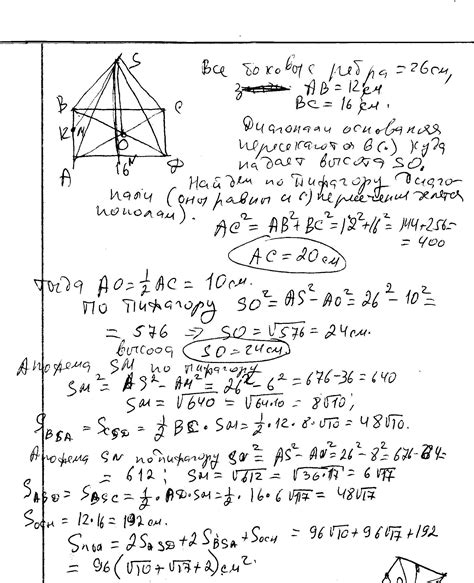 S
B
C
12
N
M
O
A
16
D
Все боковые ребра = 26см,
AB = 12см
BC = 16см.
Диагонали основания
пересекаются в (·) куда
падает высота SO.
Найдем по Пифагору диаго-
нали (они равны и (·) пересечения делятся
пополам).
AC² = AB² + BC² = 12² + 16² = 144 + 256 =
= 400
AC = 20см
тогда AO = ½ AC = 10см.
По Пифагору SO² = AS² - AO² = 26² - 10² =
= 576 => SO = √576 = 24см.
высота SO = 24см.
Апофема SM по Пифагору
SM² = AS² - AM² = 26² - 6² = 676 - 36 = 640
SM = √640 = √64·10 = 8√10;
S BSA = S CSD = ½ · 12 · 8 · √10 = 48√10.
Апофема SN по Пифагору SN² = AS² - AN² = 26² - 8² = 676 - 64 =
= 612; SN = √612 = √36·17 = 6√17
S ASD = S BSC = ½ · AD · SM = ½ · 16 · 6√17 = 48√17
S осн = 12·16 = 192см.
S пол = 2S ASD + 2S BSA + S осн = 96√10 + 96√17 + 192
= 96(√10 + √17 + 2) см².